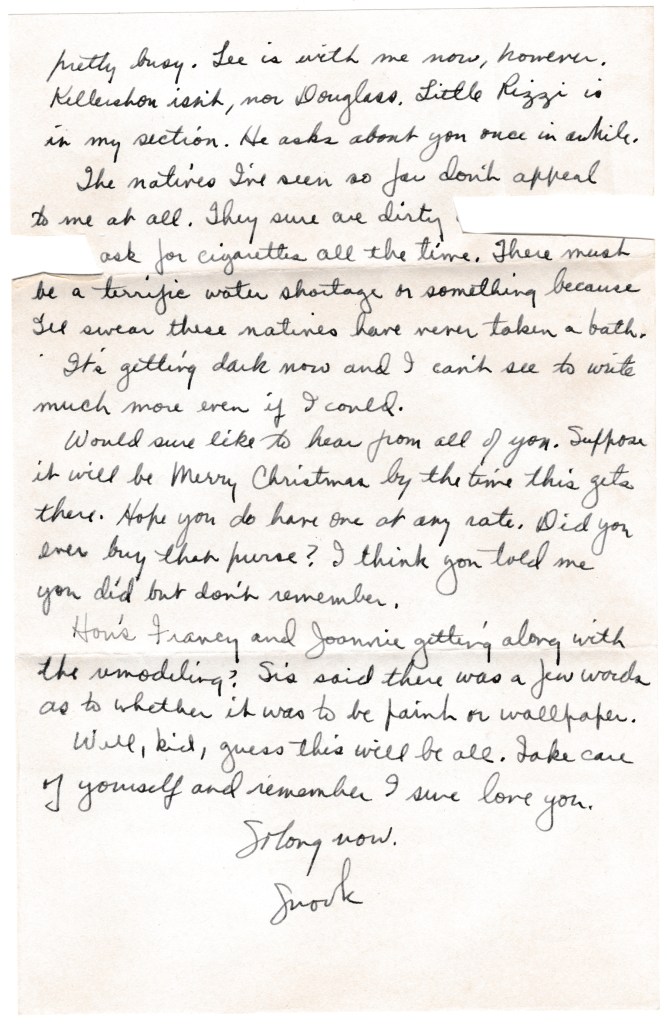 pretty busy. Lee is with me now, however.
Killershon isn't, nor Douglass. Little Rizzi is
in my section. He asks about you once in awhile.
The natives I've seen so far don't appeal
to me at all. They sure are dirty
ask for cigarettes all the time. There must
be a terrific water shortage or something because
I'll swear these natives have never taken a bath.
It's getting dark now and I can't see to write
much more even if I could.
Would sure like to hear from all of you. Suppose
it will be Merry Christmas by the time this gets
there. Hope you do have one at any rate. Did you
ever buy that purse? I think you told me
you did but don't remember.
How's Francy and Joannie getting along with
the remodeling? Sis said there was a few words
as to whether it was to be paint or wallpaper.
Well, kid, guess this will be all. Take care
of yourself and remember I sure love you.
So long now.
Snook